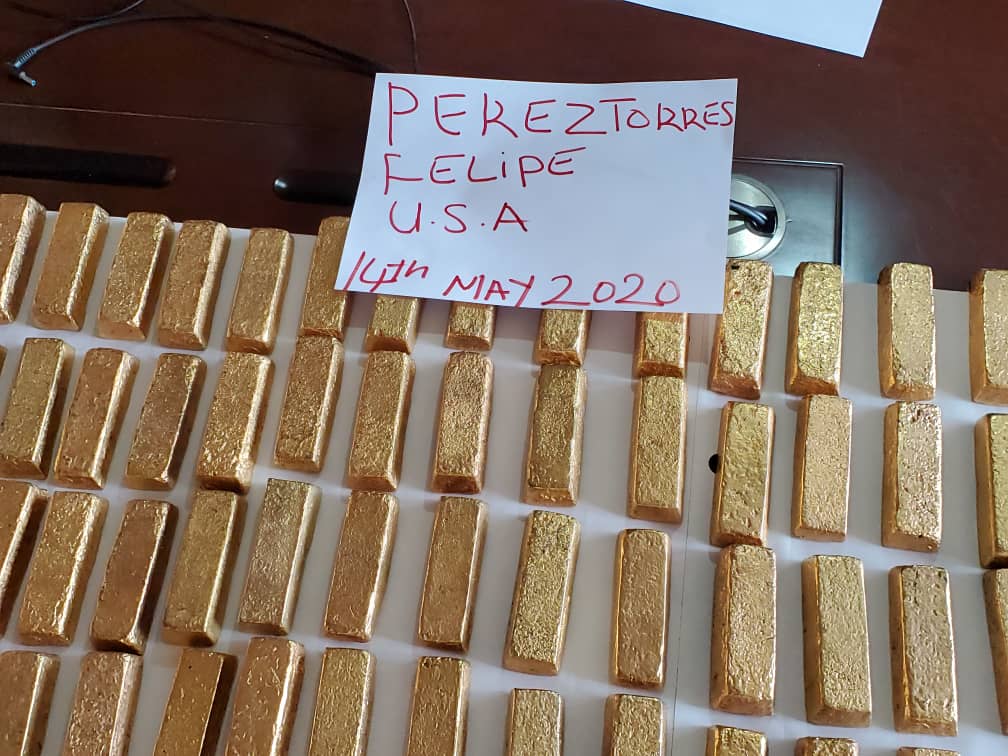 PEREZ TORRES
FELIPE
U.S.A
14th MAY 2020